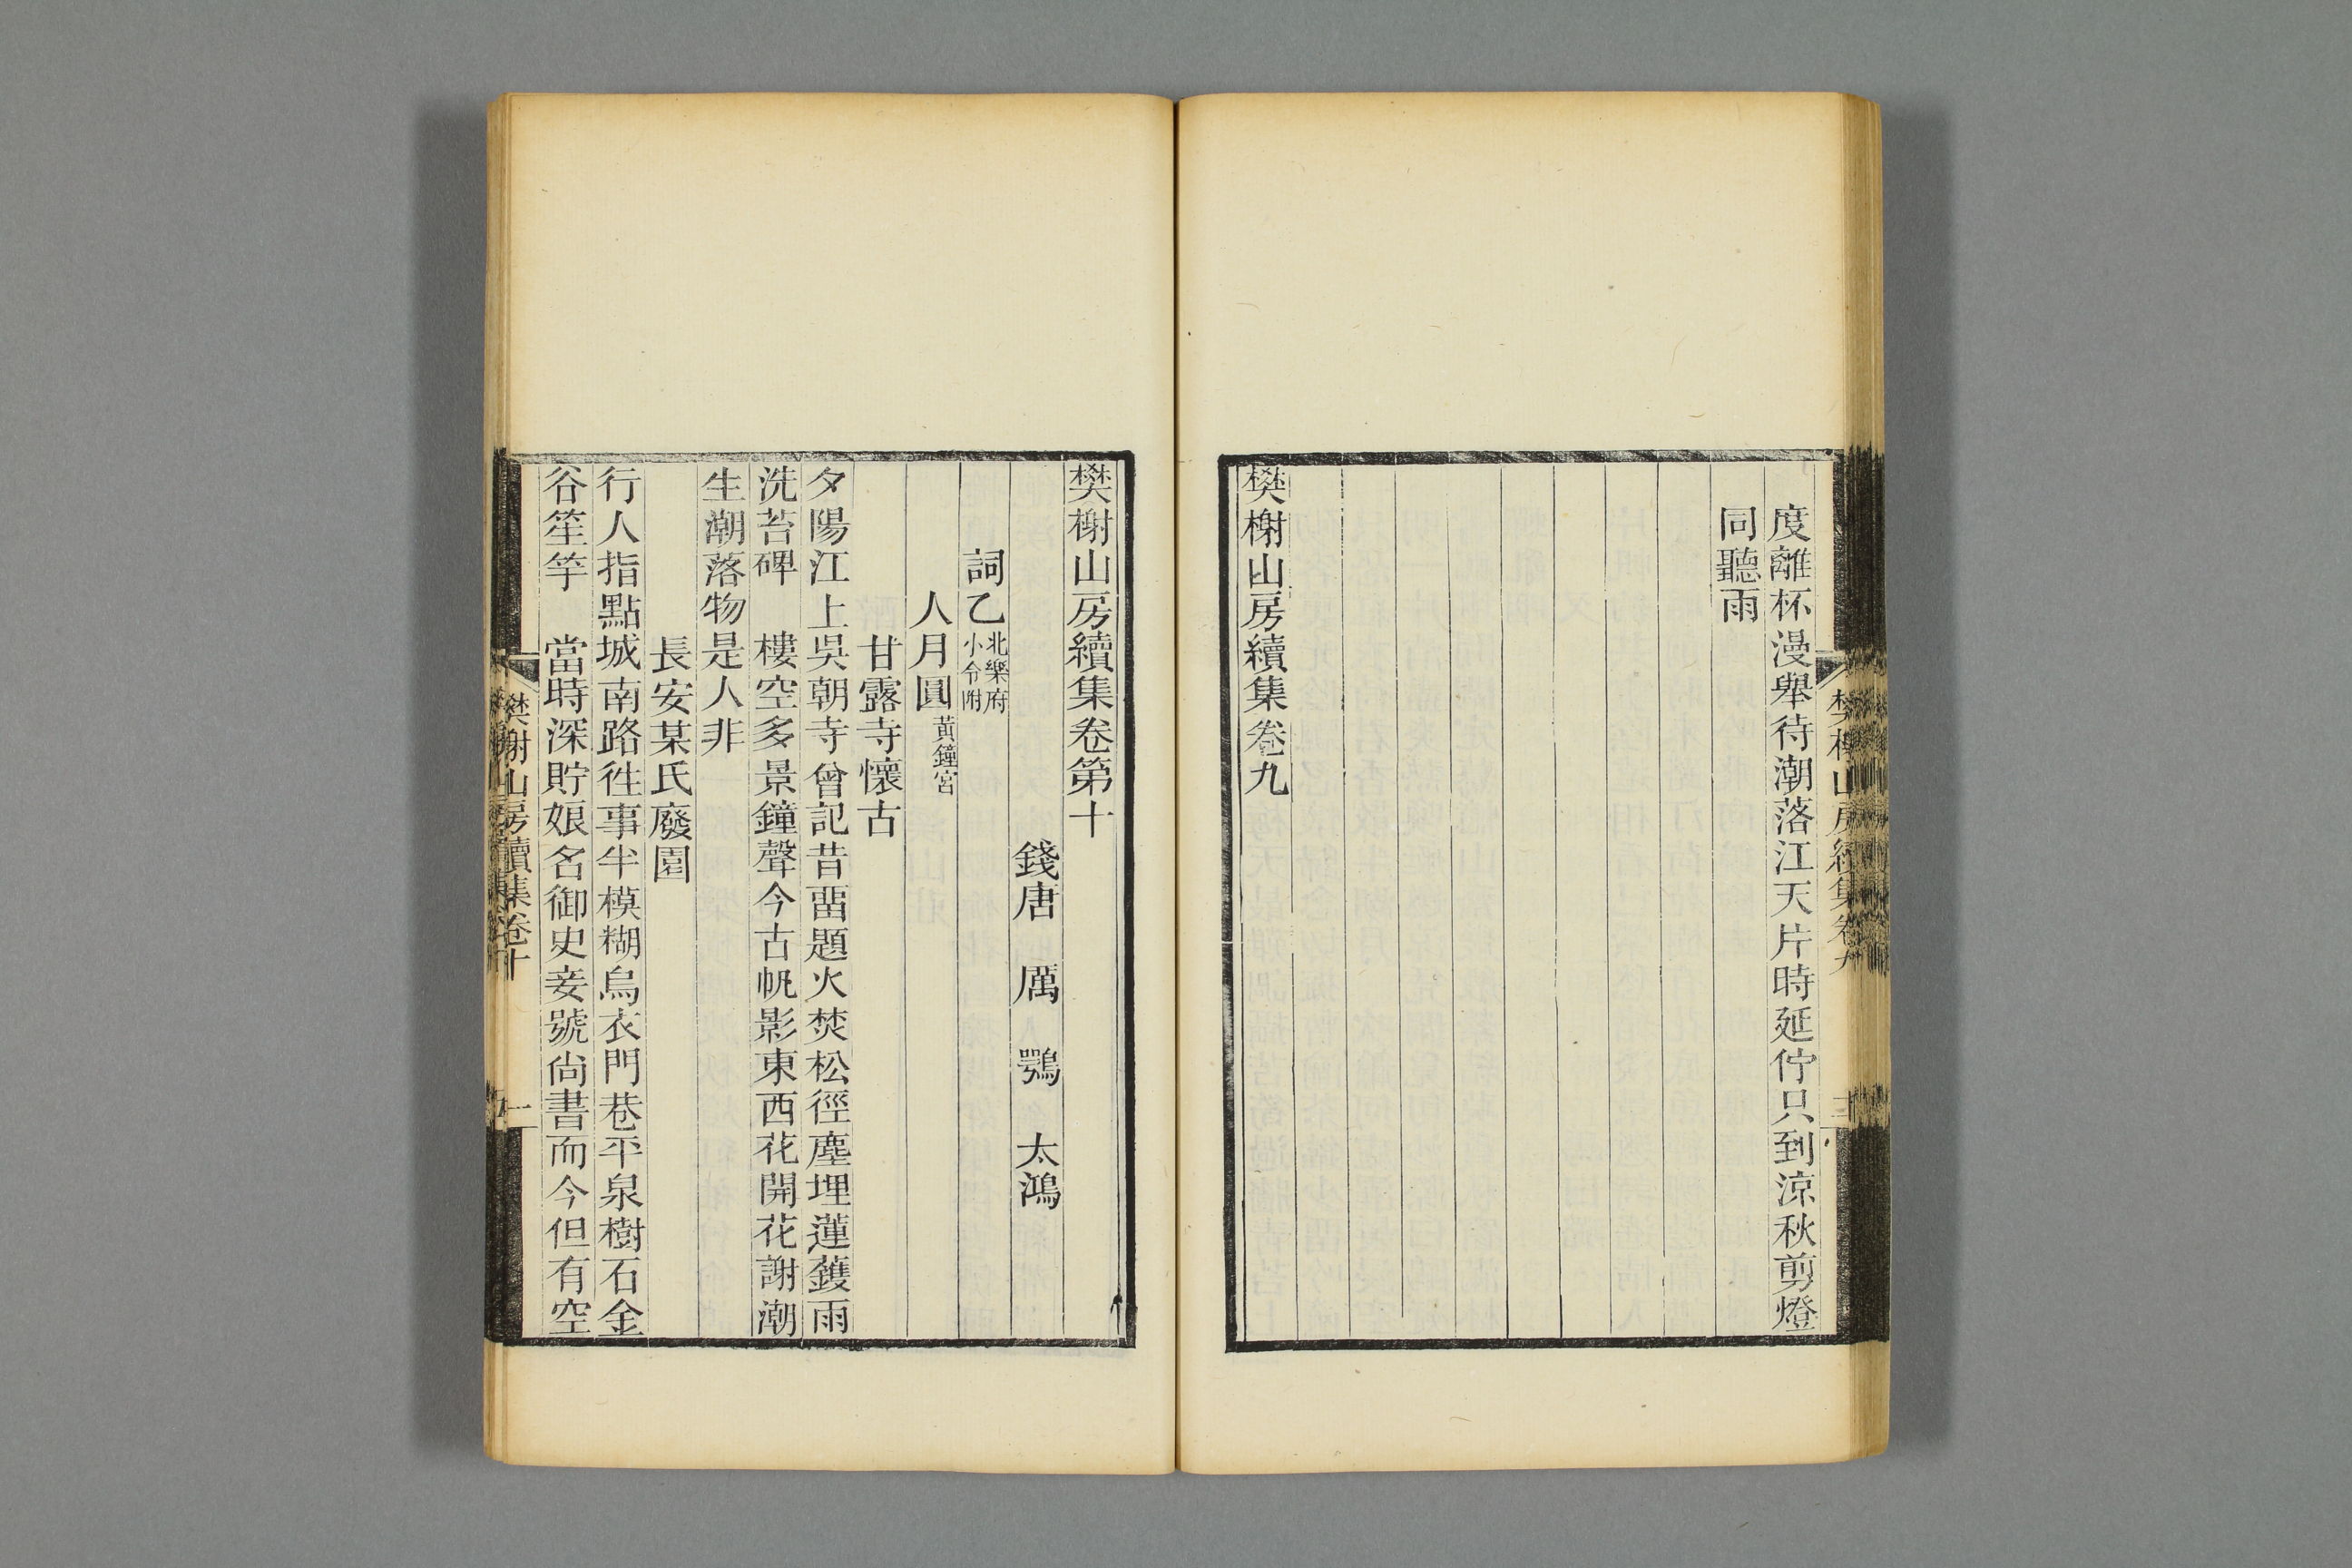 度離杯漫舉待潮落江天片時延佇只到涼秋剪燈
同聽雨
樊榭山房續集卷九
樊榭山房續集卷九
樊榭山房續集卷第十
錢唐　厲　鶚　太鴻
詞乙北樂府小令附
人月圓黃鐘宮
甘露寺懷古
夕陽江上吳朝寺曾記昔畱題火焚松徑塵埋蓮鑊雨
洗苔碑　樓空多景鐘聲今古帆影東西花開花謝潮
生潮落物是人非
長安某氏廢園
行人指點城南路徃事半模糊烏衣門巷平泉樹石金
谷笙竽　當時深貯娘名御史妾號尙書而今但有空
樊榭山房續集卷十
一